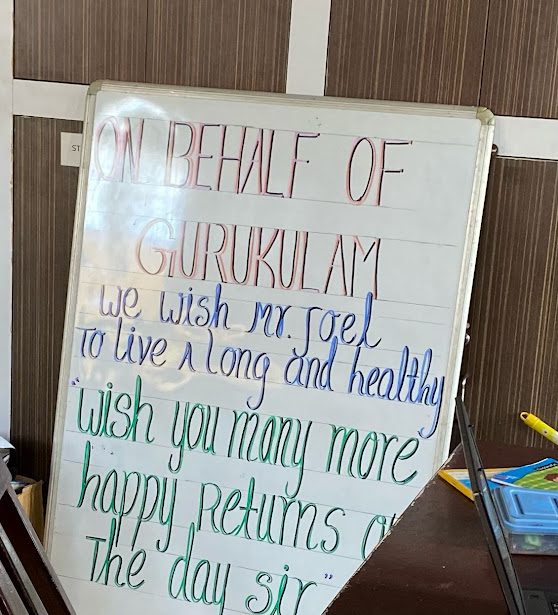 ST
ON BEHALF OF
GURUKULAM
We wish Mr. Joel
To live A long and healthy
"wish you many more
happy Returns
The day sir"